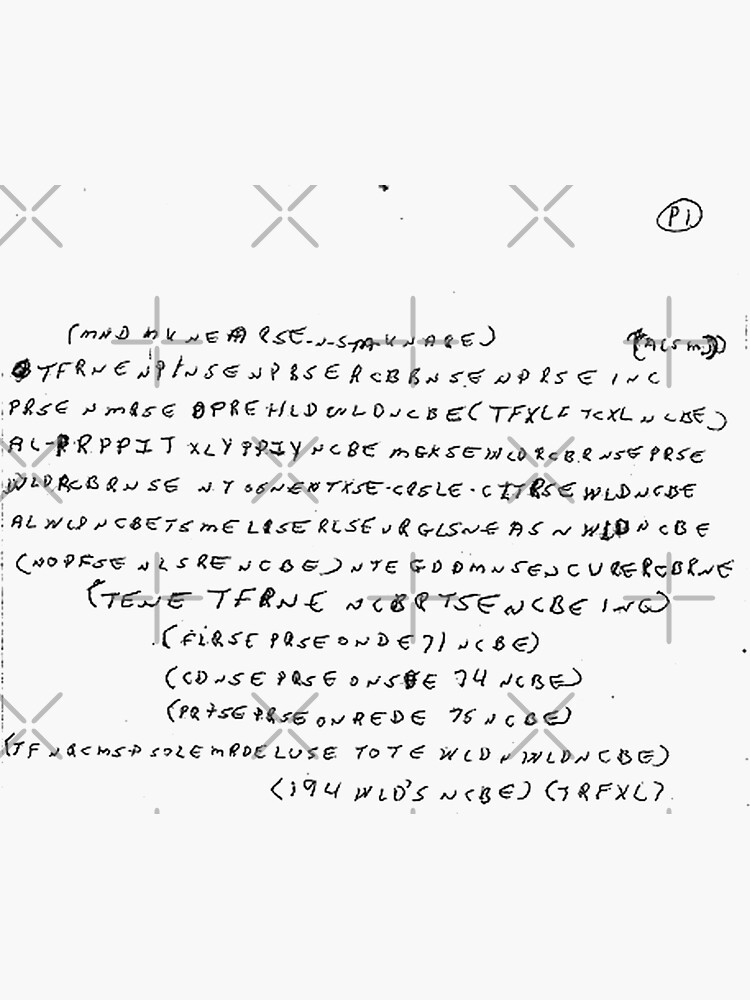 P1
(MND MKNEARSE-N-S-M-KNARE) (ACSM)
TFRNENPINSENPBSERCBBNSENPRSEINC
PRSENMRSEOPREHLDWLDNCBE(TFXLFTCXLNCBE)
AL-PRPPIT XLYPPIYNCBE MGKSEWLDRCBRNSEPRSE
WLDRCBRNSE NTOSNENTXSE-CRSLE-CITRSEWLDNCBE
ALWLPNCBETSMELRSERLSEURGLSNEASNWLDNCBE
(NOPFSE NLSRENCBE) NTEGDDMNSENCURERCBRNE
(TENE TFRNE NCBRTSENCBEING)
(FLRSE PRSEONDE71NCBE)
(CDNSE PRSEONSDE 74 NCBE)
(PRTSE PRSEONREDE 75 NCBE)
(TFNRCMSP SOLEMRDELUSE TOTE WLDNWLDNCBE)
(194 WLD'S NCBE) (TRFXL)